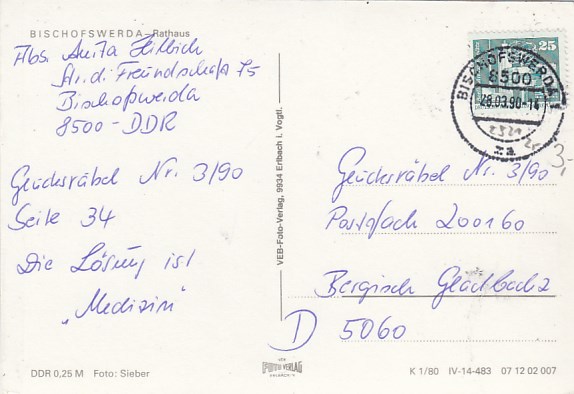 BISCHOFSWERDA – Rathaus
Abs. Anita Hillbich
Str. d. Freundschaft 75
Bischofswerda
8500-DDR
Glücksräbel Nr. 3/90
Seite 34
Die Lösung ist
„Medizin"
DDR 0,25 M Foto: Sieber
VEB-Foto-Verlag, 9934 Erlbach i. Vogtl.
25
BISCHOFSWERDA 1
8500
28.03.90-14
za
3,-
Glücksräbel Nr. 3/90
Postfach 200160
Bergisch Gladbach 2
D 5060
VEB
FOTO VERLAG
ERLBACH
K 1/80 IV-14-483 07 12 02 007